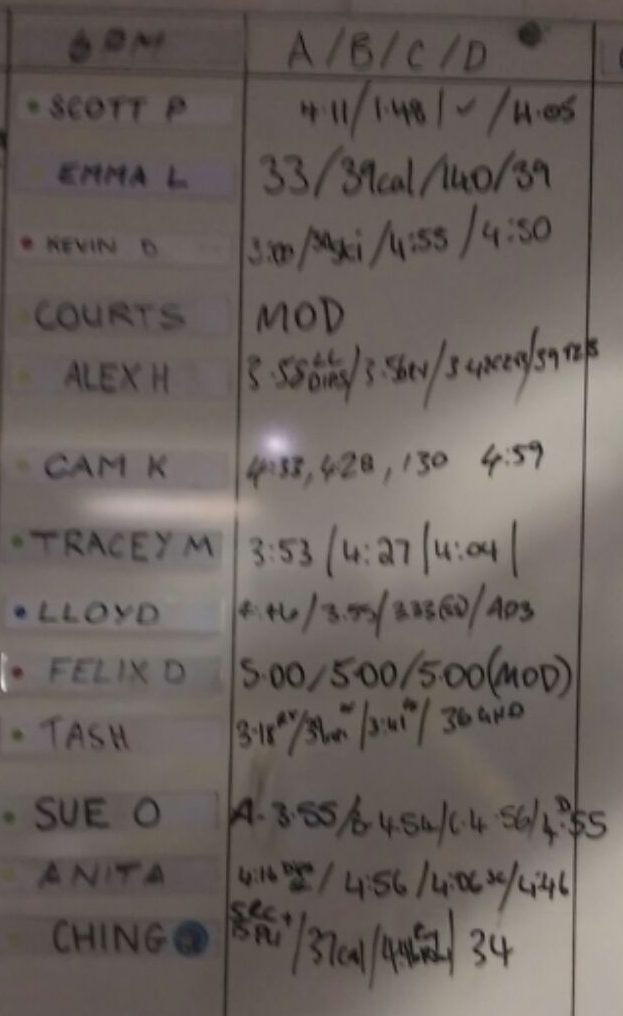 6PM A/B/C/D
SCOTT P 4.11/1.48/✓/4.05
EMMA L 33/39cal/140/39
KEVIN D 3:00/ /4:55/4:50
COURTS MOD
ALEX H
CAM K 4:33, 4:28, 130 4:59
TRACEY M 3:53/4:27/4:04/
LLOYD /3.55/ /403
FELIX D 5.00/5.00/5.00(MOD)
TASH 3.18 / / /36 GHD
SUE O A. 3.55/B 4.54/C.4.56/4.55
ANITA 4:16 / 4:56/4:06 /4:46
CHING /37cal/ / 34